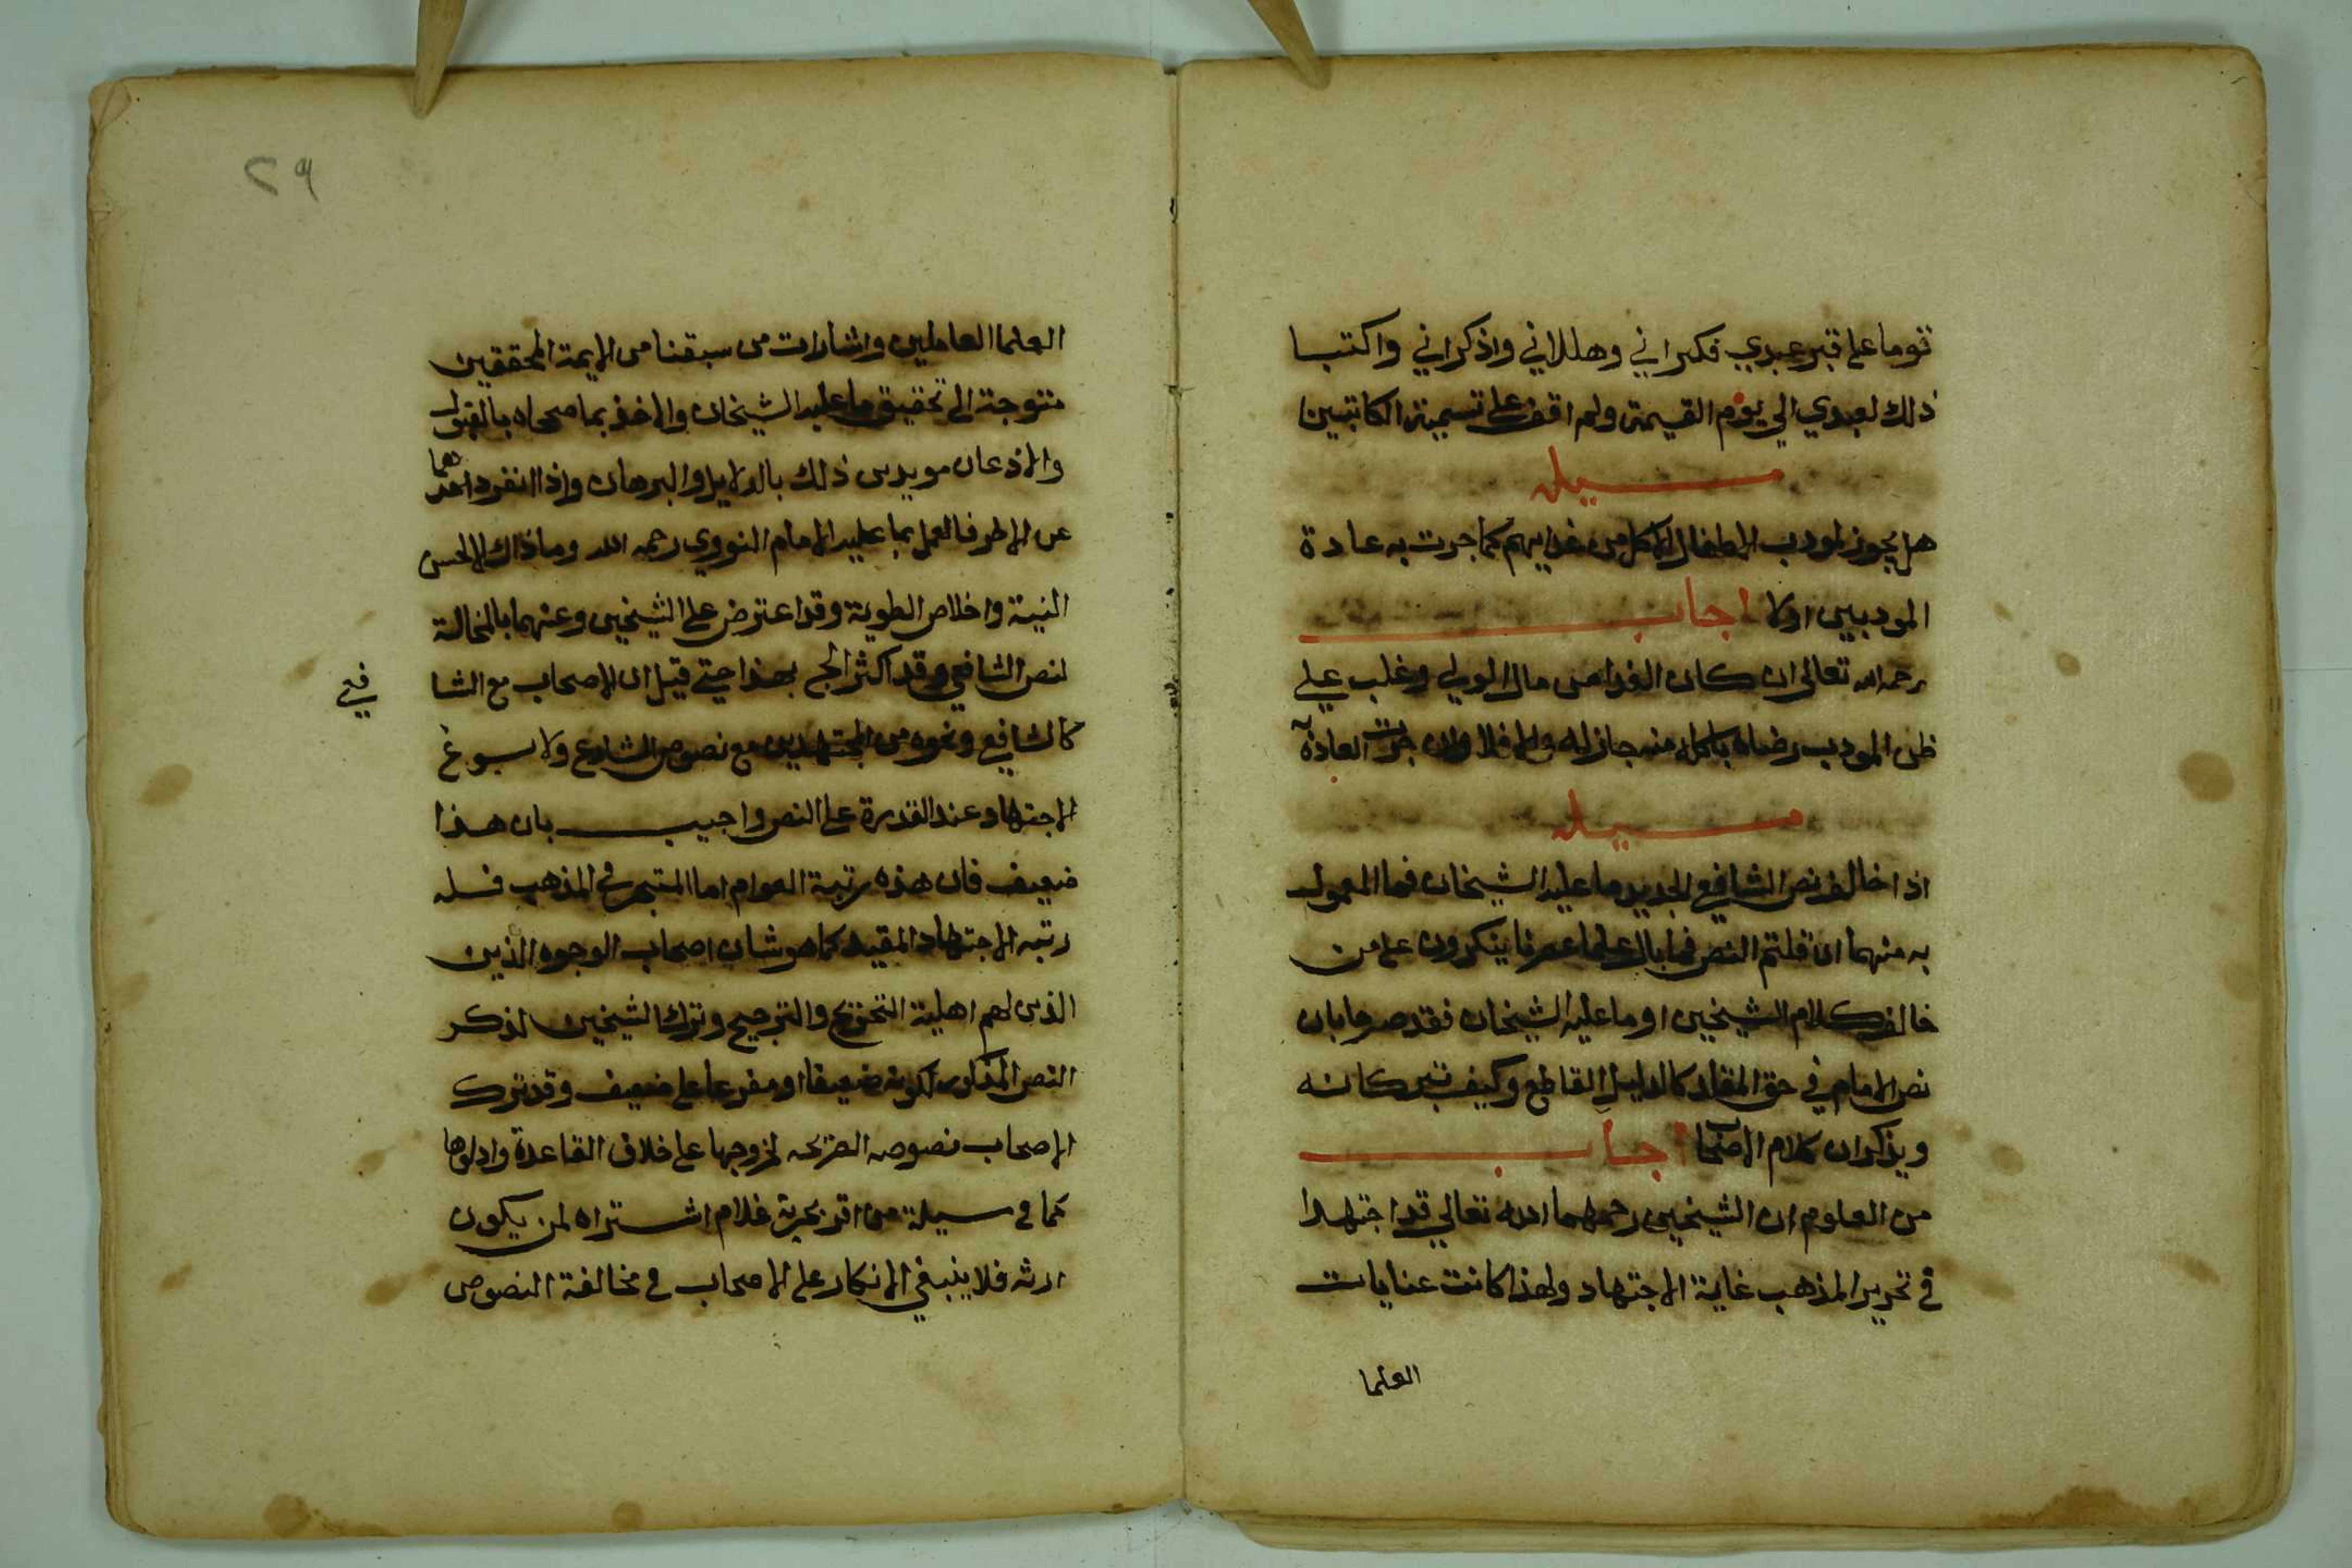 قوما على قبر عبدي فكبراني وهللاني واذكراني واكتبا
ذلك لعبدي الي يوم القيمة ولم اقف على تسمية الكاتبين
مسيله
هل يجوز لمودب الاطفال الاكل من غدايهم كما جرت به عادة
المودبين اولا اجاب
رحمه الله تعالى ان كان الغدا من مال الولي وغلب علي
ظن المودب رضاه باكله منه جاز له والا فلا وان جرت العادة
مسيله
اذا خالف نص الشافعي الجديد ما عليه الشيخان فما المعمول
به منهما ان قلتم النص فما بال علما عصرنا ينكرون على من
خالف كلام الشيخين او ما عليه الشيخان فقد صرحا بان
نص الامام في حق المقلد كالدليل القاطع وكيف تتركانه
ويذكران كلام الاصحاب اجاب
من المعلوم ان الشيخين رحمهما الله تعالي قد اجتهدا
في تحرير المذهب غاية الاجتهاد ولهذا كانت عنايات
العلما
٢٩
العلما العاملين واشارات من سبقنا من الايمة المحققين
متوجة الى تحقيق ما عليه الشيخان والاخذ بما صححاه بالقبول
والاذعان مويدين ذلك بالدلايل والبرهان واذا انفرد احدهما
عن الاخر فالعمل بما عليه الامام النووي رحمه الله وما ذاك الا لحسن
النية واخلاص الطوية وقد اعترض على الشيخين وغيرهما بالمخالفة
لنص الشافعي وقد اكثر الحج بهذا حتي قيل ان الاصحاب مع الشا
فعي
كالشافعي ونحوه من المجتهدين مع نصوص الشارع ولا يسوغ
الاجتهاد عند القدرة على النص واجيب بان هذا
ضعيف فان هذه رتبة العوام اما المتبحر في المذهب فله
رتبه الاجتهاد المقيد كما هو شان اصحاب الوجوه الذين
الذين لهم اهلية التخريج والترجيح وترك الشيخين لذكر
النص المذكور لكونه ضعيفا او مفرعا على ضعيف وقد ترك
الاصحاب نصوصه الصريحه لخروجها على خلاف القاعدة واولوها
كما في سيلة من اقر بحرية غلام اشتراه لمن يكون
ارثه فلا ينبغي الانكار على الاصحاب في مخالفة النصوص